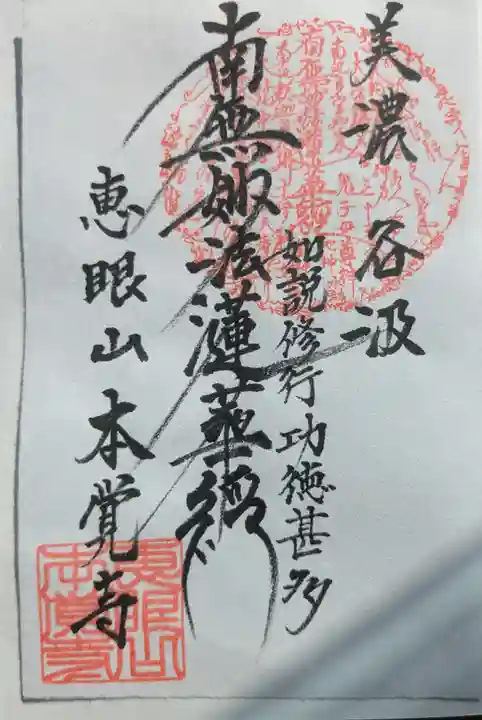 美濃 谷汲
如説修行功徳甚多
南無妙法蓮華経
恵眼山 本覚寺
恵眼山
本覚寺